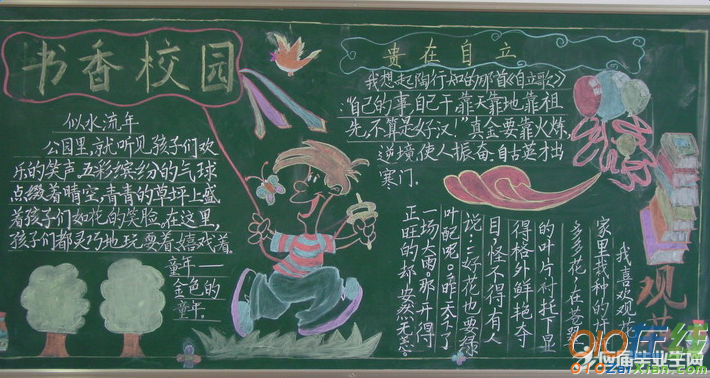 书香校园
似水流年
公园里,就听见孩子们欢
乐的笑声,五彩缤纷的气球
点缀着晴空,青青的草坪上盛
着孩子们如花的笑脸。在这里,
孩子们都灵巧地玩耍着,嬉戏着。
童年——
金色的
童年。
贵在自立
我想起陶行知的那首《自立歌》
“自己的事自己干,靠天靠地靠祖
先,不算是好汉!”真金要靠火炼,
逆境使人振奋,自古英才出
寒门。
观
我喜欢观
家里栽种的
多多花,在
的叶片衬托下显
得格外鲜艳夺
目,怪不得有人
说:好花也要绿
叶配呢。昨天下了
一场大雨,那开得
正旺的却安然无恙
910在线
910ZaiXian.com
应届毕业生网